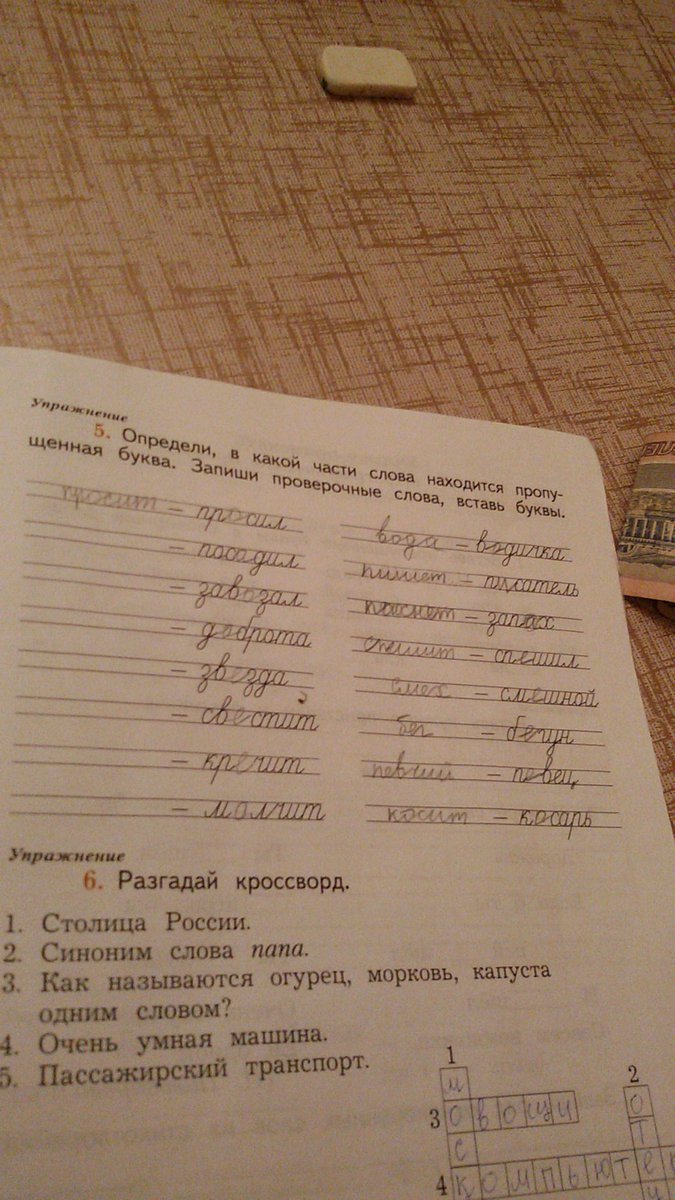 Упражнение
5. Определи, в какой части слова находится пропу-
щенная буква. Запиши проверочные слова, вставь буквы.
просит – просил
– посадил
– завозал
– доброта
– звезда
– свестит
– кречит
– молчит
вода – водичка
пишет – писатель
пахнет – запах
спешит – спешил
смех – смешной
бег – бегун
певчий – певец
косит – косарь
Упражнение
6. Разгадай кроссворд.
1. Столица России.
2. Синоним слова папа.
3. Как называются огурец, морковь, капуста
одним словом?
4. Очень умная машина.
5. Пассажирский транспорт.
1
м
2
3 овощи о
с т
4 компьютер